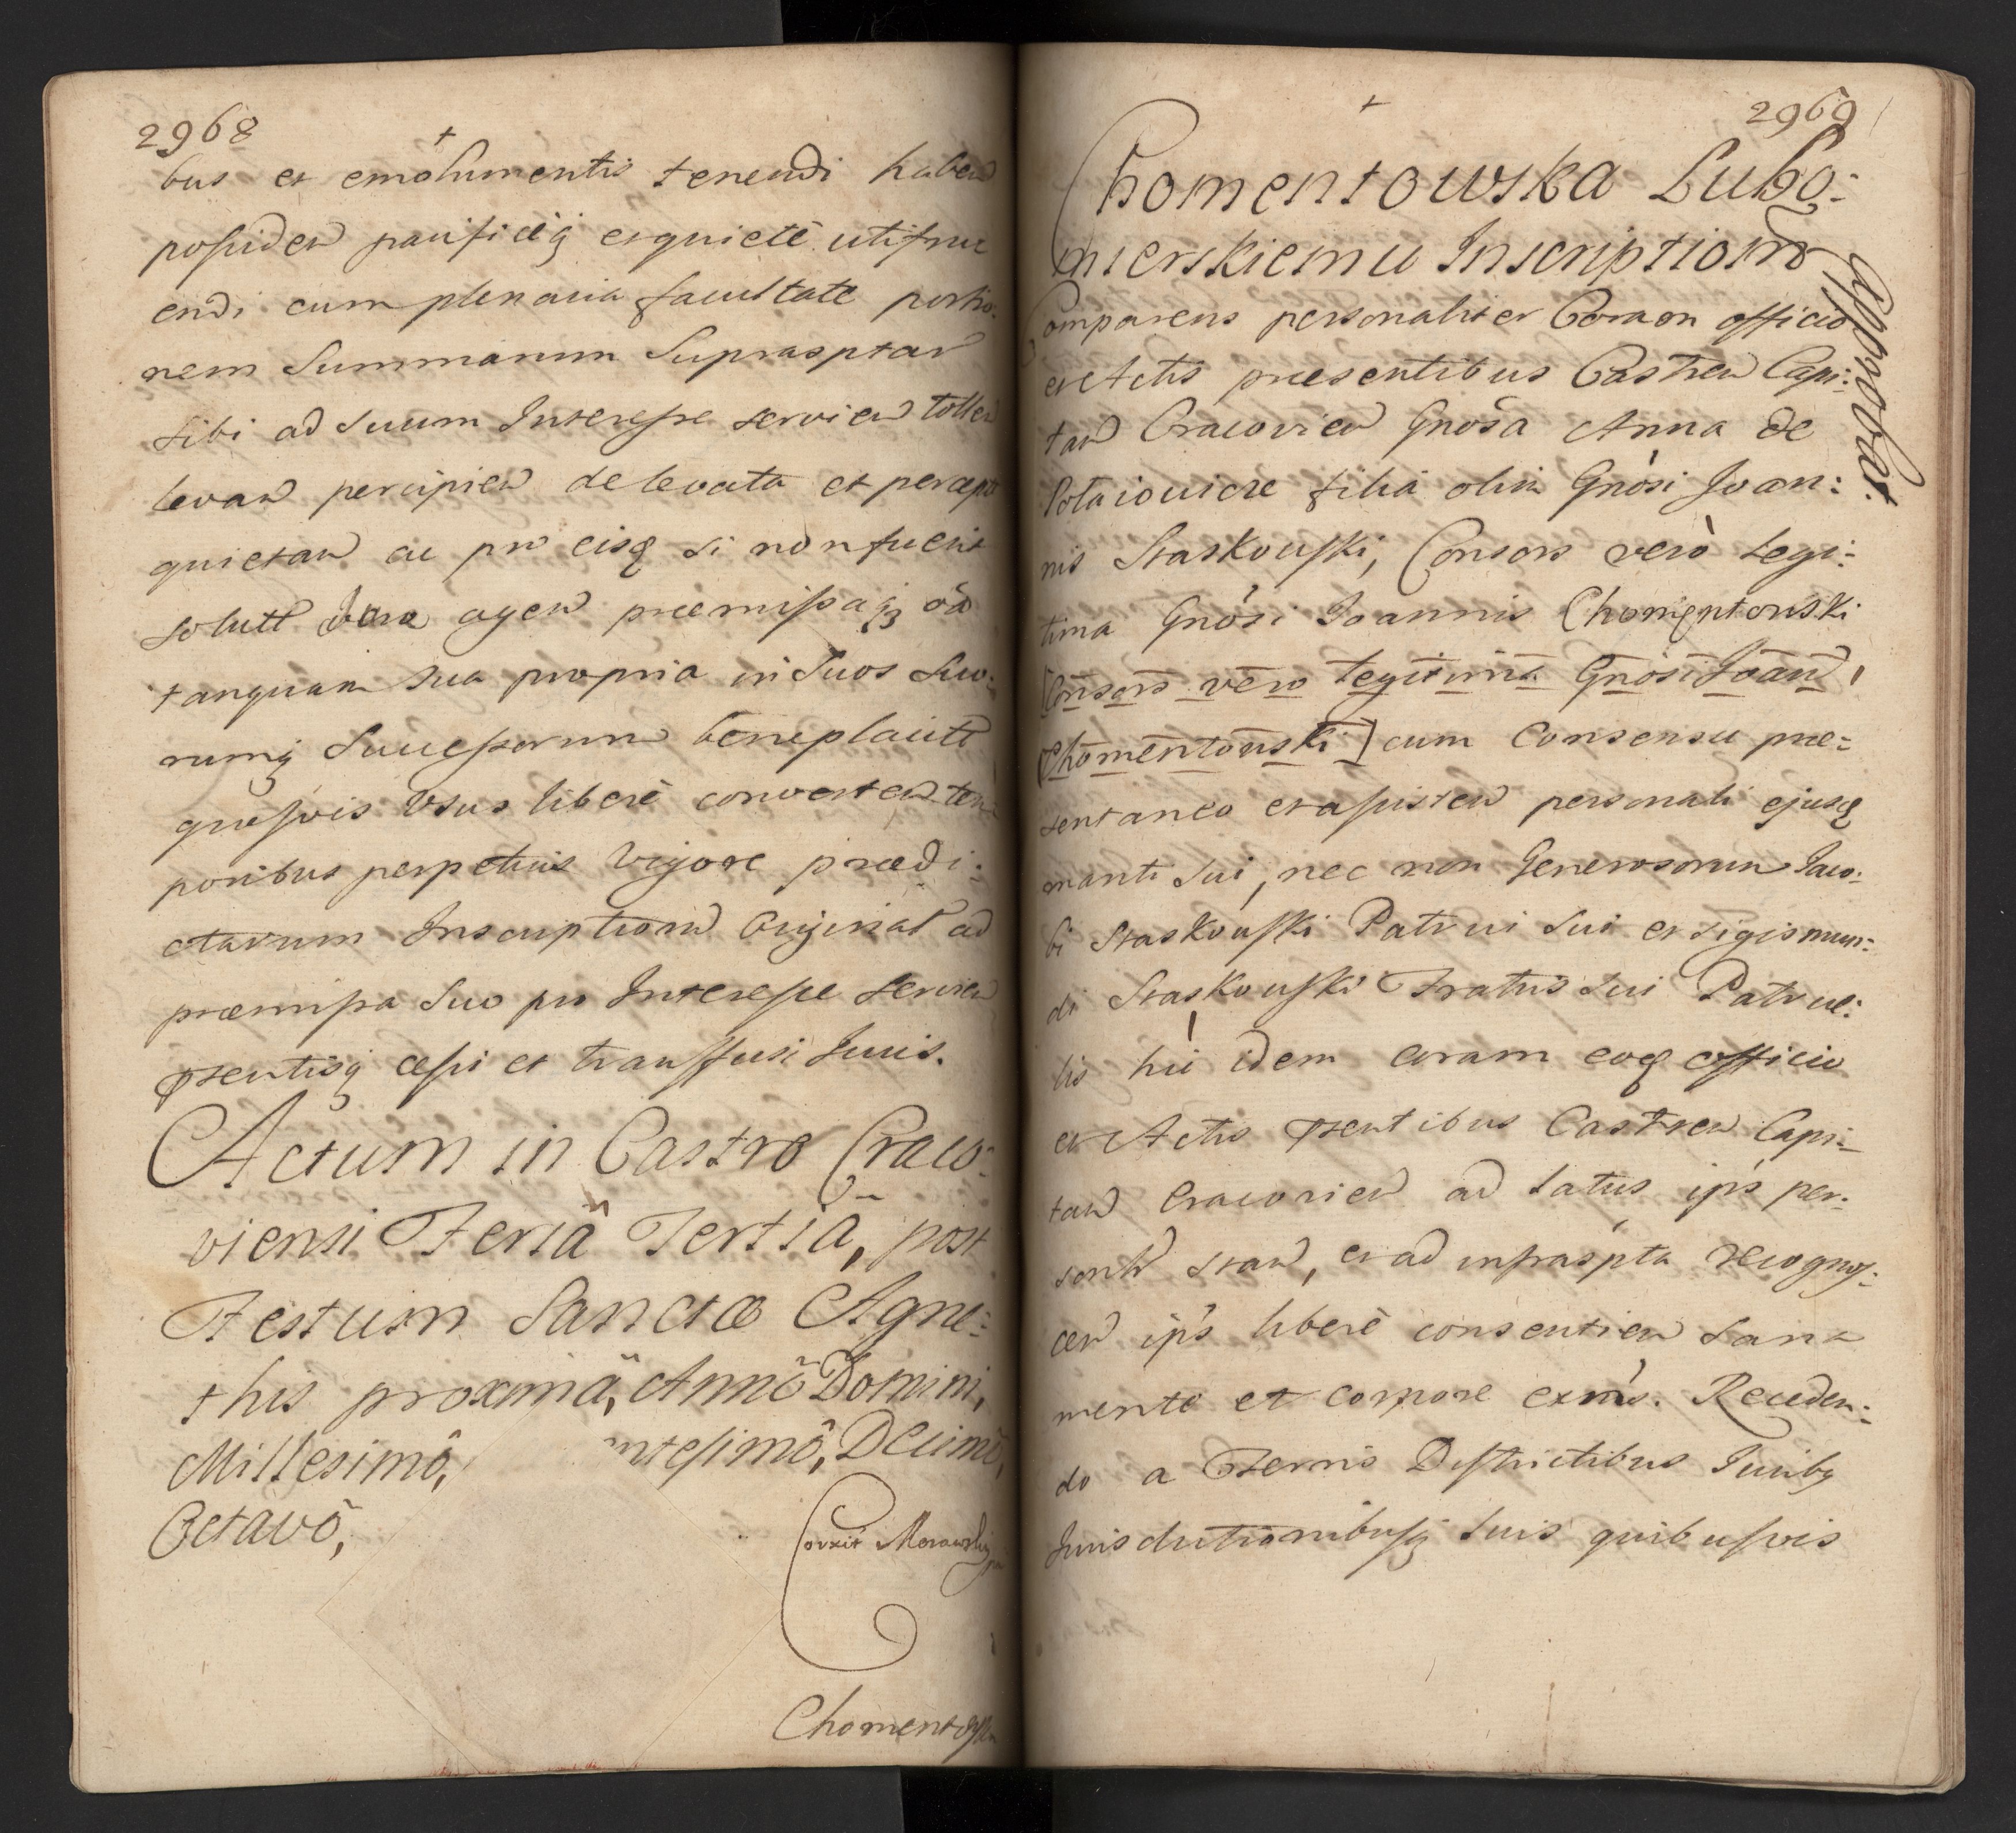 2968
+
bus et emolumentis tenendi haben
possiden pacificeq et quiete utifru
endi cum plenaria facultate portio:
nem Summarum Suprasptar
sibi ad Suum Interesse servien tollen
levan percipien de levatis et percept
quietan ac pro eisq si non fuerit
solutt Jure agen præmissaq3 oa
tanquam sua propria in Suos Suo:
rumq Successorum beneplacitt
quosvis Usus liberè converten tem
poribus perpetuis Vigore prædi:
ctarum Inscriptionu Originat ad
præmissa Suo pro Interesse servien
psentisq cessi et transfusi Juris.
Actum in Castro Craco:
viensi Feria Tertia, post
Festum Sanctæ Agne:
this proxima, Annô Domini,
Millesimô, ntesimô, Decimô,
Octavô,
Corxit Morawsky
Chomentowska
+
2969
Chomentowska Lubo:
mierskiemu Inscriptiom
Comparens personaliter Coram officio
et Actis præsentibus Castren Capi:
tan Cracovien Gnosa Anna de
filia olim Gnosi Joan:
nis Staskouski, Consors verò Legi:
tima Gnosi Joannis Chomentouski
[Consors vero Legitima Gnosi Joan,
Chomentouski] cum Consensu præ:
sentaneo et assisten personali ejusq
mariti Sui, nec non Generosorum Jaco:
bi Staskouski Patrui Sui et Sigismun:
di Staskouski Fratris Sui Patrue:
lis hic idem coram eoq officio
et Actis psentibus Castren Capi:
tan Cracovien ad Latus ips per:
sonlr stan, et ad infraspta recognos:
cen ips liberè consentien Sana
mente et corpore exns. Receden:
do a Terris Districtibus Juribq
Jurisdictionibusq Suis quibusvis